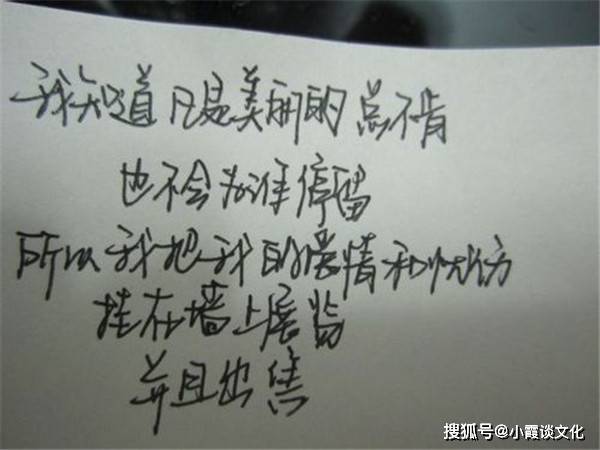 我知道凡是美丽的总不肯
也不会为谁停留
所以我把我的爱情和忧伤
挂在墙上展览
并且出售
搜狐号@小霞谈文化